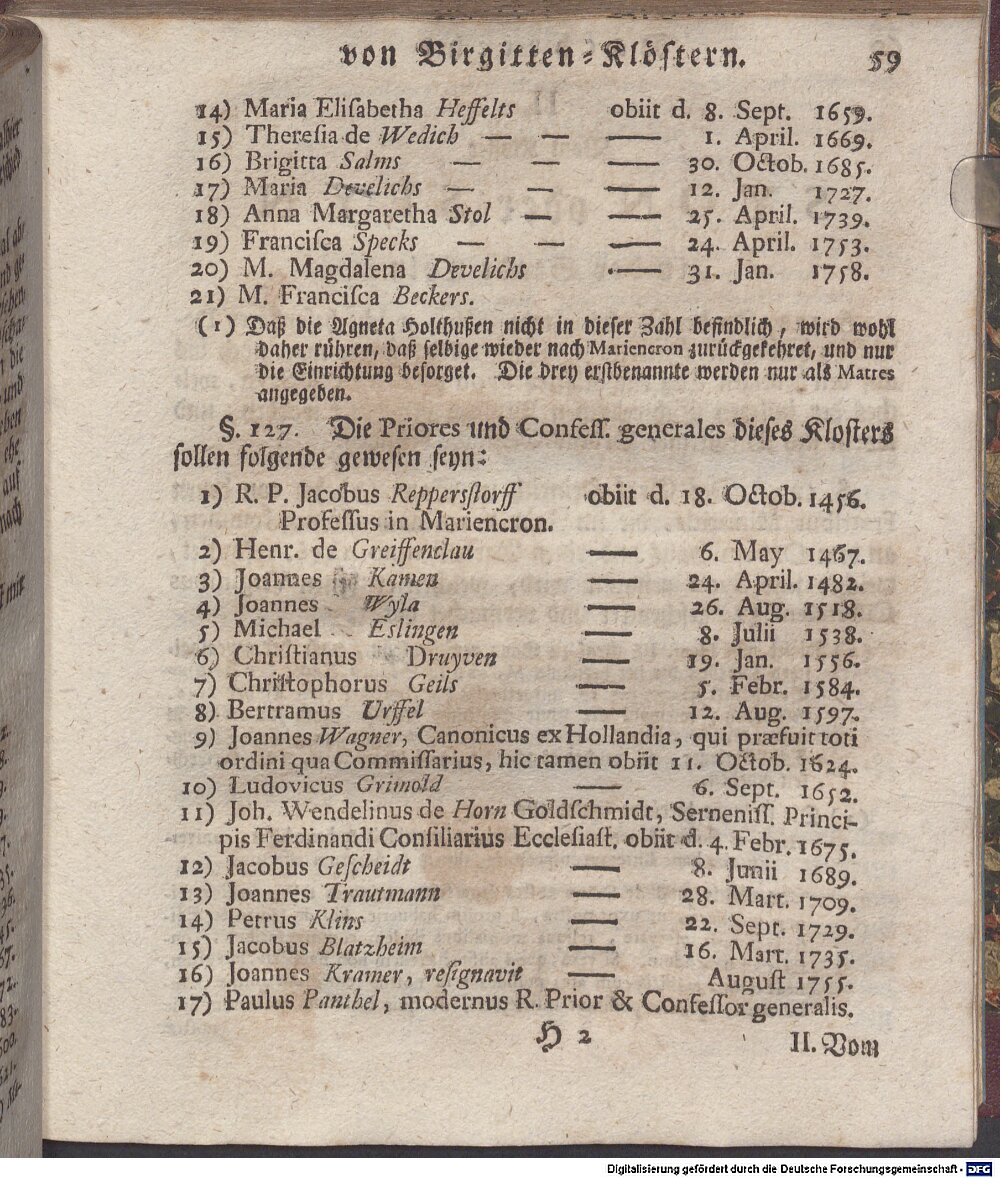 von Birgitten-Klöstern. 59
14) Maria Elisabetha Heffelts obiit d. 8. Sept. 1659.
15) Theresia de Wedich — — — 1. April. 1669.
16) Brigitta Salms — — — 30. Octob. 1685.
17) Maria Develichs — — — 12. Jan. 1727.
18) Anna Margaretha Stol — — 25. April. 1739.
19) Francisca Specks — — — 24. April. 1753.
20) M. Magdalena Develichs — 31. Jan. 1758.
21) M. Francisca Beckers.
(1) Daß die Agneta Holthußen nicht in dieser Zahl befindlich, wird wohl
daher rühren, daß selbige wieder nach Mariencron zurückgekehret, und nur
die Einrichtung besorget. Die drey erstbenannte werden nur als Matres
angegeben.
§. 127. Die Priores und Confess. generales dieses Klosters
sollen folgende gewesen seyn:
1) R. P. Jacobus Repperstorff obiit d. 18. Octob. 1456.
Professus in Mariencron.
2) Henr. de Greiffenclau — 6. May 1467.
3) Joannes Kamen — 24. April. 1482.
4) Joannes Wyla — 26. Aug. 1518.
5) Michael Eslingen — 8. Julii 1538.
6) Christianus Druyven — 19. Jan. 1556.
7) Christophorus Geils — 5. Febr. 1584.
8) Bertramus Urffel — 12. Aug. 1597.
9) Joannes Wagner, Canonicus ex Hollandia, qui præfuit toti
ordini qua Commissarius, hic tamen obiit 11. Octob. 1624.
10) Ludovicus Grimold — 6. Sept. 1652.
11) Joh. Wendelinus de Horn Goldschmidt, Serneniss. Princi-
pis Ferdinandi Consiliarius Ecclesiast. obiit d. 4. Febr. 1675.
12) Jacobus Gescheidt — 8. Junii 1689.
13) Joannes Trautmann — 28. Mart. 1709.
14) Petrus Klins — 22. Sept. 1729.
15) Jacobus Blatzheim — 16. Mart. 1735.
16) Joannes Kramer, resignavit — August 1755.
17) Paulus Panthel, modernus R. Prior & Confessor generalis.
H 2 II. Vom
Digitalisierung gefördert durch die Deutsche Forschungsgemeinschaft - DFG